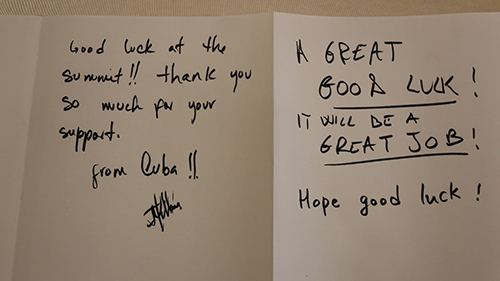 Good luck at the
summit!! thank you
so much for your
support.
from Cuba!!
A GREAT
GOOD LUCK!
IT WILL BE A
GREAT JOB!
Hope good luck!